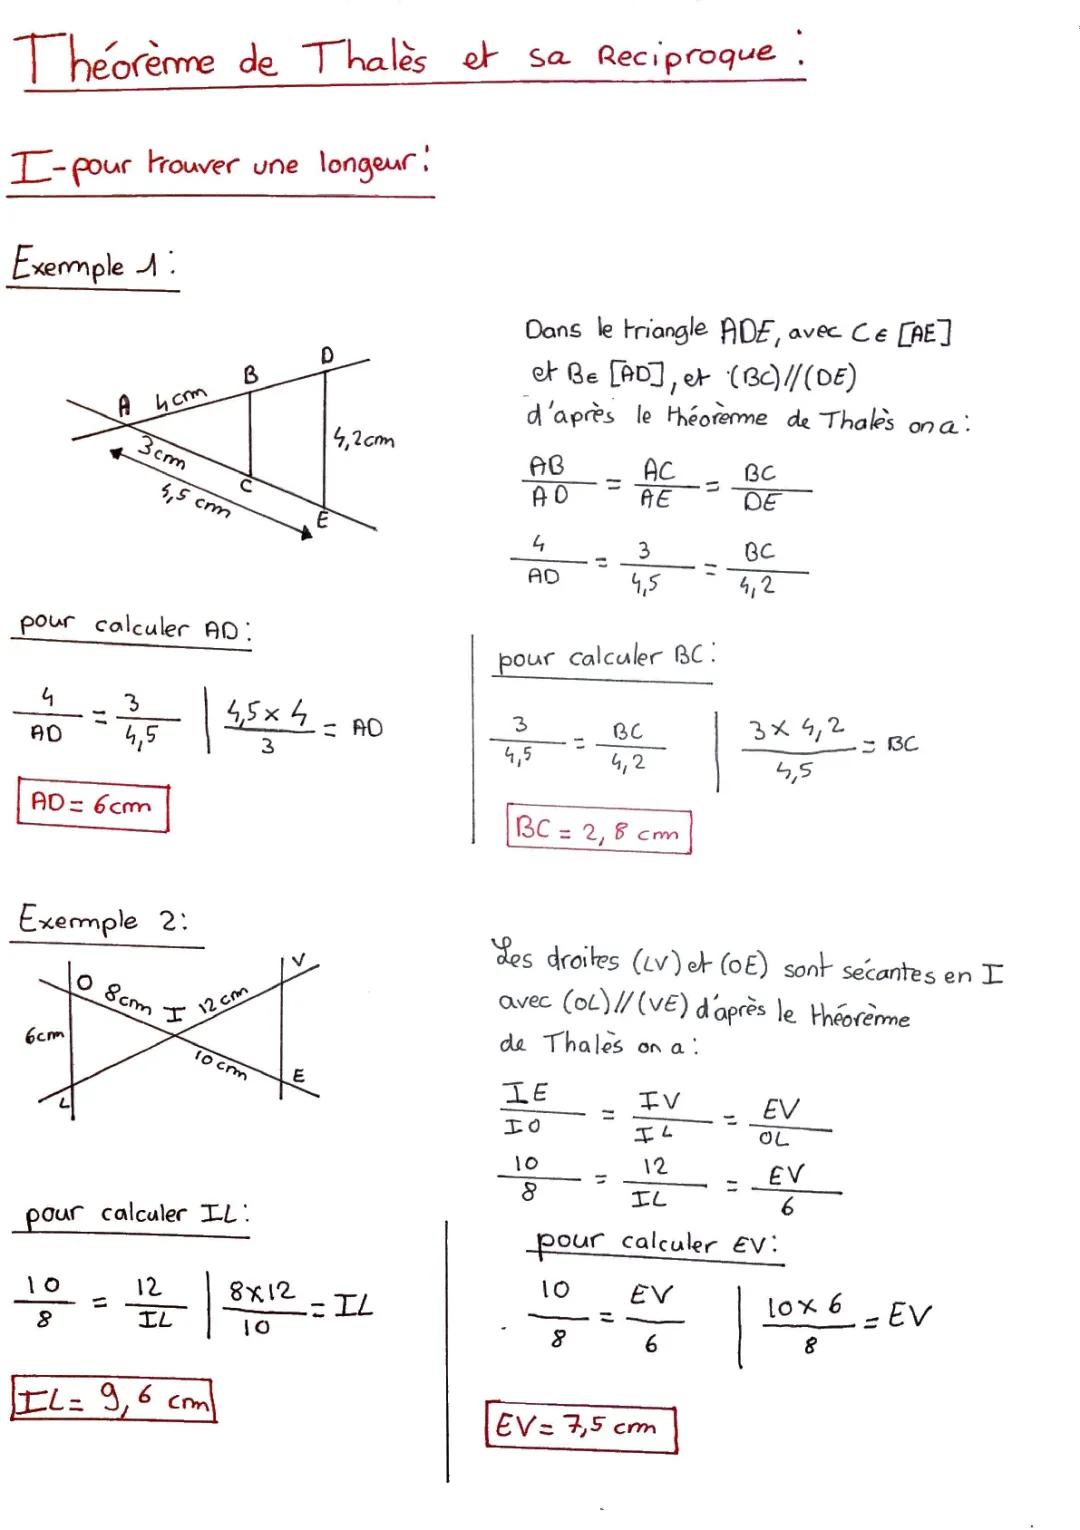 Théorème de Thalès et sa Reciproque :
I-pour trouver une longeur :
Exemple 1 :
A 4cm B D
3cm C 4,2cm
4,5 cm E
Dans le triangle ADE, avec C∈ [AE]
et B∈ [AD], et (BC)//(DE)
d'après le théorème de Thalès on a :
AB/AD = AC/AE = BC/DE
4/AD = 3/4,5 = BC/4,2
pour calculer AD :
4/AD = 3/4,5 | 4,5 x 4/3 = AD
AD = 6cm
pour calculer BC :
3/4,5 = BC/4,2 | 3 x 4,2/4,5 = BC
BC = 2,8 cm
Exemple 2:
O 8cm I 12 cm V
6cm
10 cm E
L
Les droites (LV) et (OE) sont sécantes en I
avec (OL)//(VE) d'après le théorème
de Thalès on a :
IE/IO = IV/IL = EV/OL
10/8 = 12/IL = EV/6
pour calculer IL :
10/8 = 12/IL | 8x12/10 = IL
IL = 9,6 cm
pour calculer EV :
10/8 = EV/6 | 10x 6/8 = EV
EV = 7,5 cm